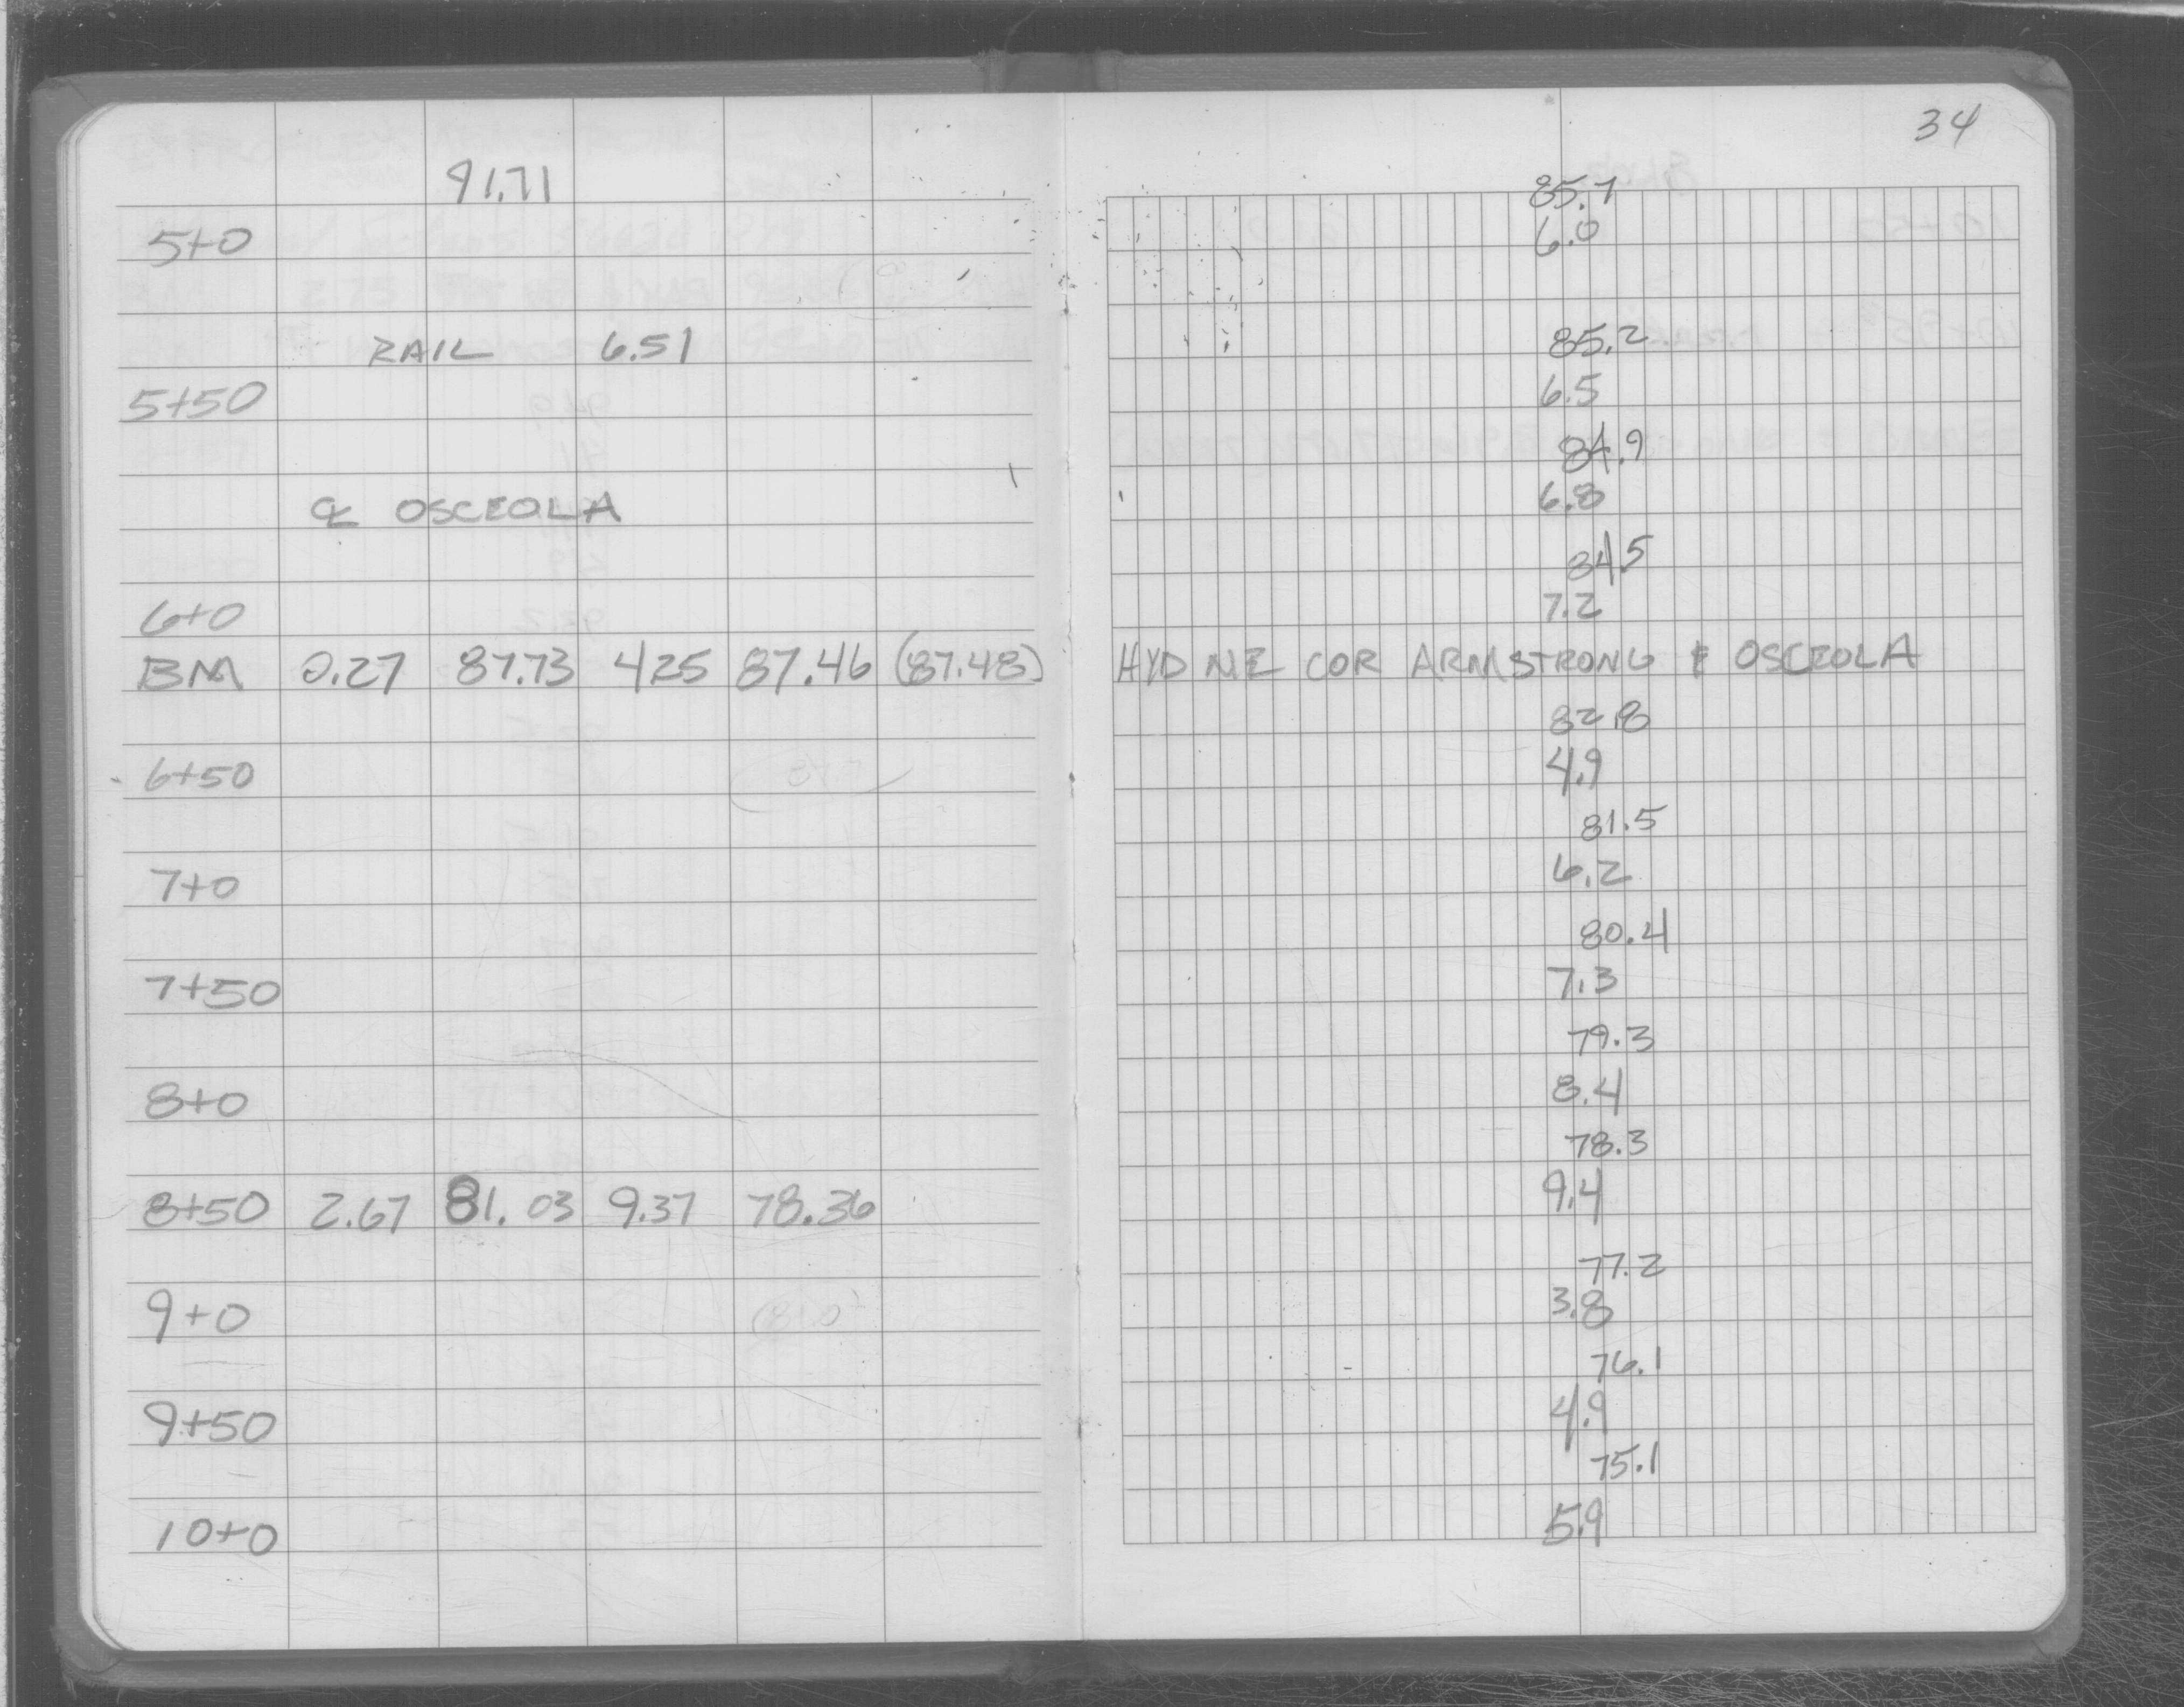 34
91.71 85.7
5+0 6.0
RAIL 6.51 85.2
5+50 6.5
84.9
℄ OSCEOLA 6.8
84.5
6+0 7.2
BM 0.27 87.73 425 87.46 (87.48) HYD NE COR ARMSTRONG & OSCEOLA
82.8
6+50 4.9
81.5
7+0 6.2
80.4
7+50 7.3
79.3
8+0 8.4
78.3
8+50 2.67 81.03 9.37 78.36 9.4
77.2
9+0 3.8
76.1
9+50 4.9
75.1
10+0 5.9